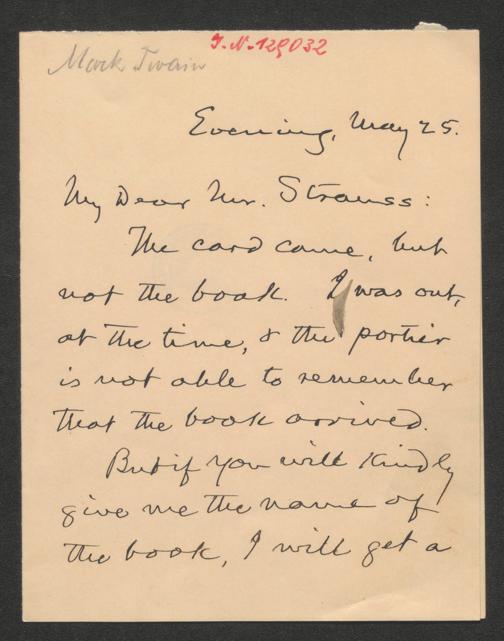 Mark Twain
I.N. 129032
Evening, May 25.
My Dear Mr. Strauss:
The card came, but
not the book. I was out,
at the time, & the portier
is not able to remember
that the book arrived.
But if you will kindly
give me the name of
the book, I will get a